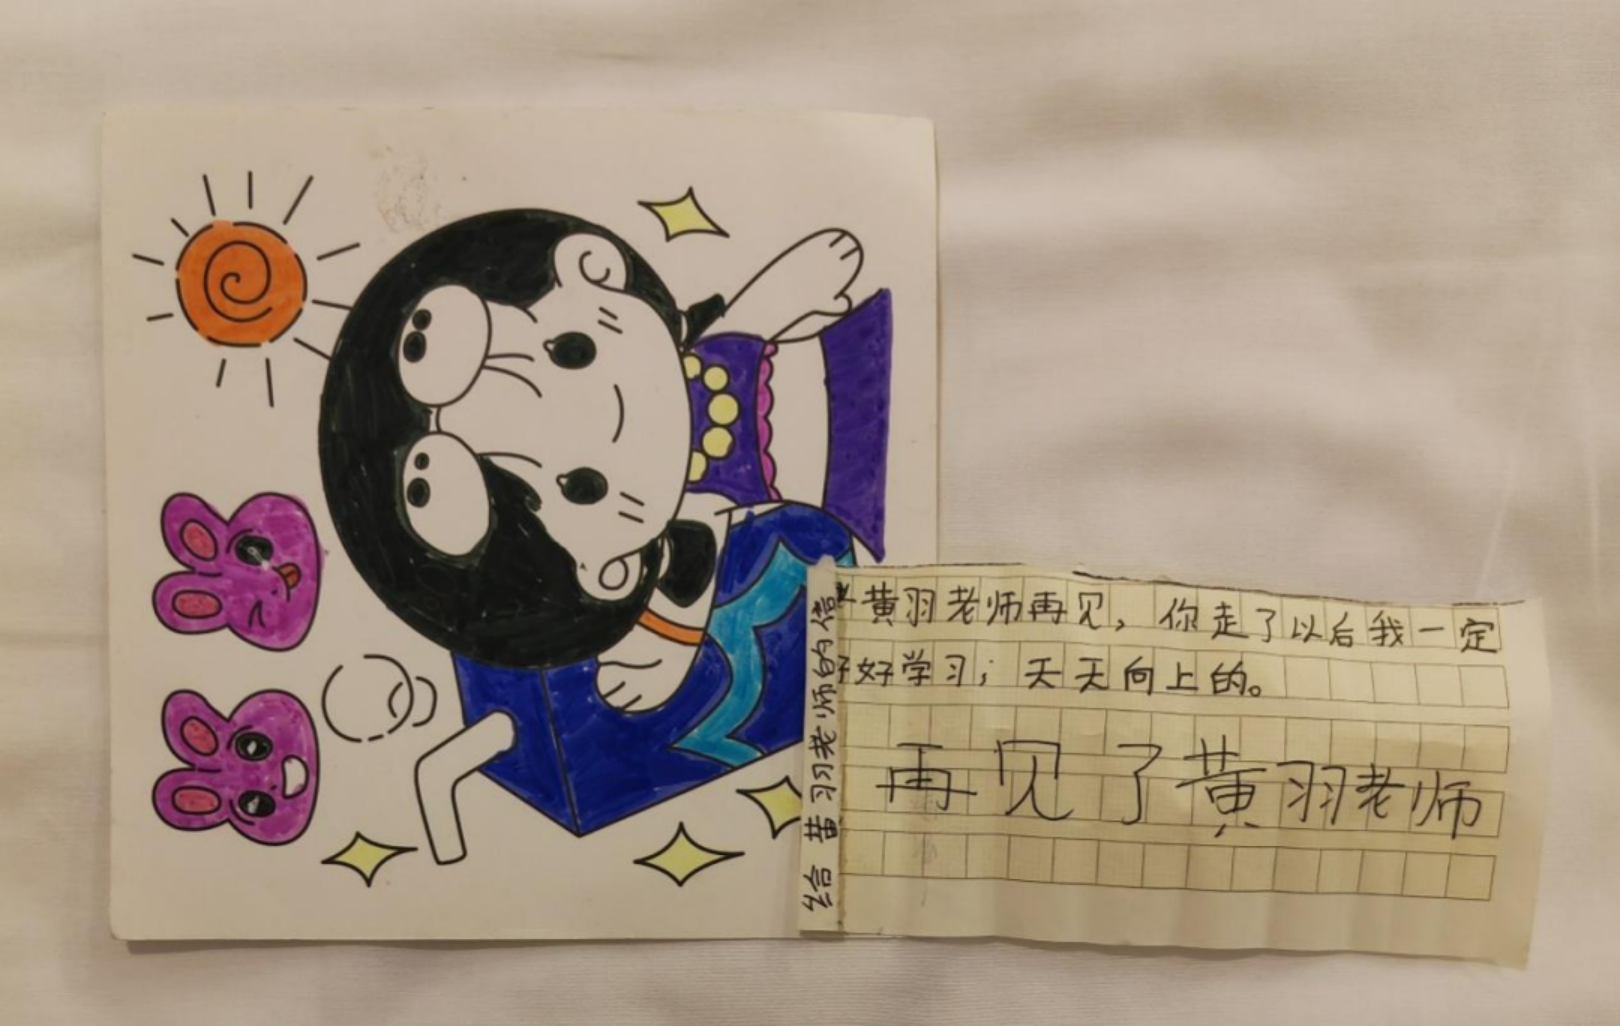 给黄羽老师的信
黄羽老师再见，你走了以后我一定
好好学习；天天向上的。
再见了黄羽老师